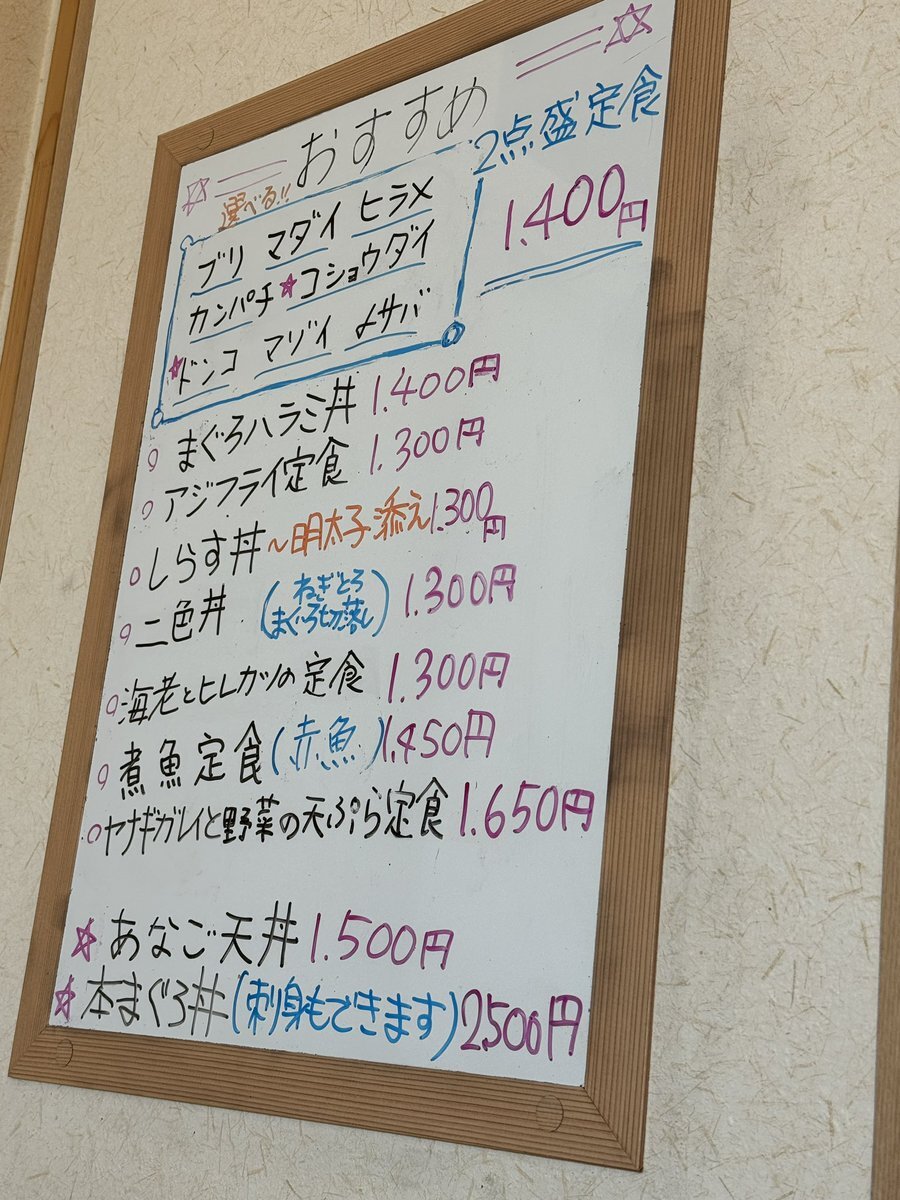 おすすめ
選べる!!
2点盛定食
1.400円
ブリ マダイ ヒラメ
カンパチ ☆コショウダイ
☆ドンコ マゾイ 〆サバ
○ まぐろハラミ丼 1.400円
○ アジフライ定食 1.300円
○ しらす丼~明太子添え 1.300円
○ 二色丼 (ねぎとろ まぐろ切落し) 1.300円
○ 海老とヒレカツの定食 1.300円
○ 煮魚定食(赤魚) 1.450円
○ ヤナギガレイと野菜の天ぷら定食 1.650円
☆ あなご天丼 1.500円
☆ 本まぐろ丼(刺身もできます) 2.500円